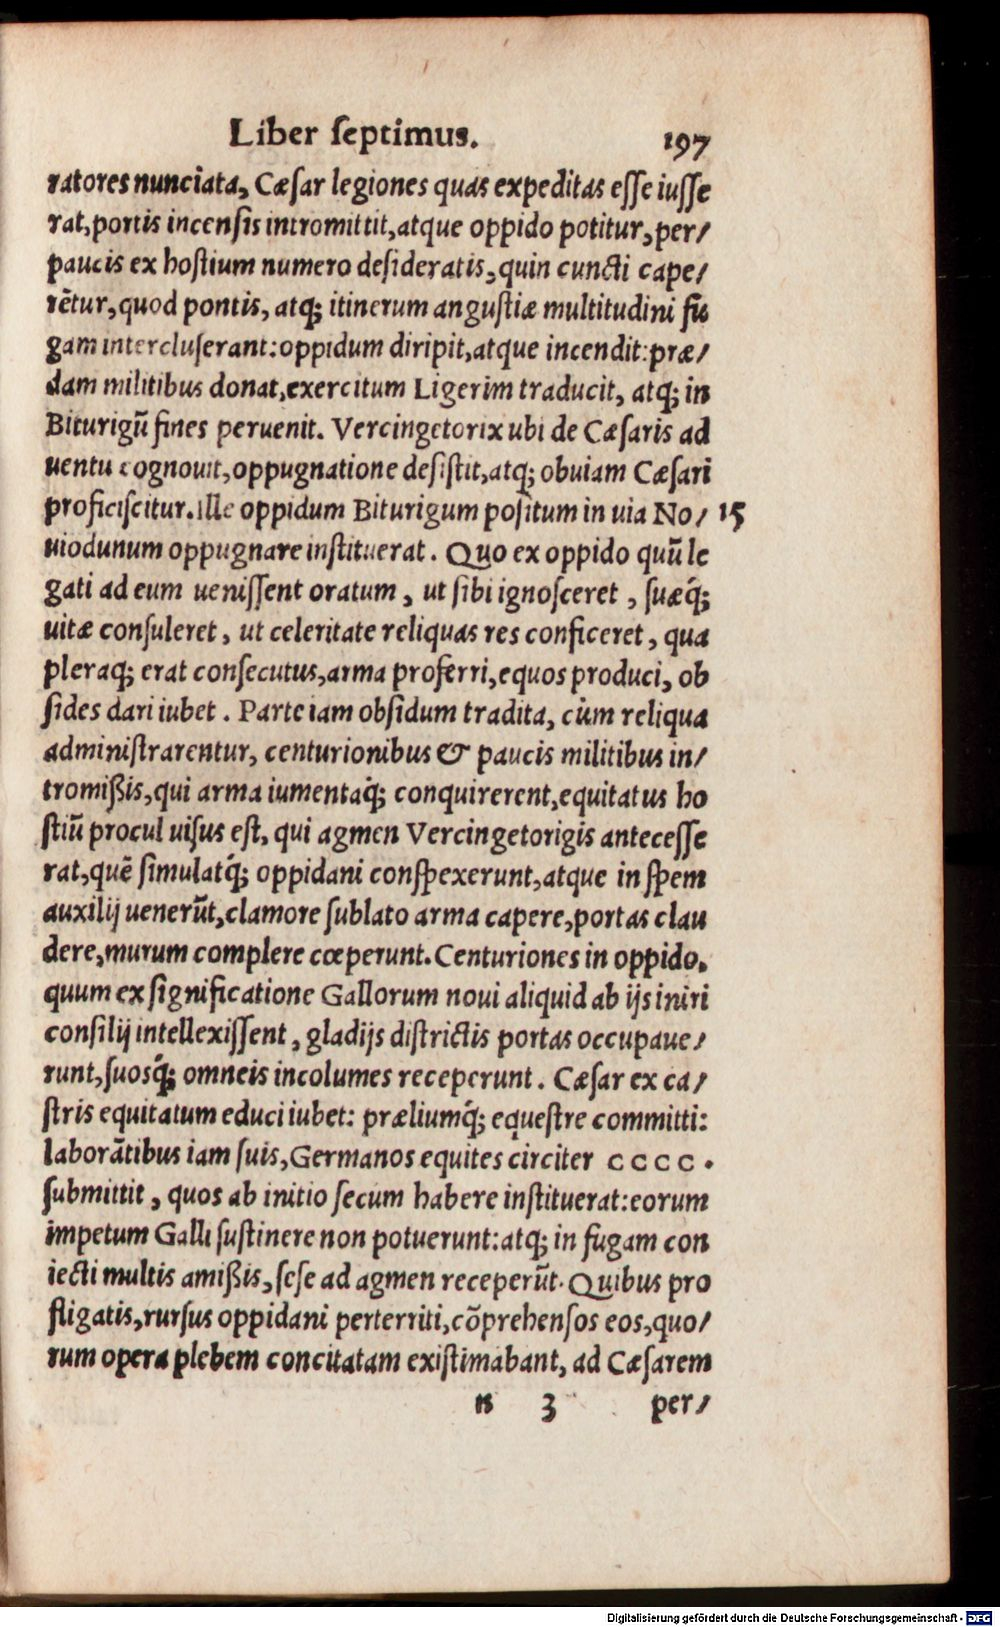 Liber ſeptimus. 197
ratores nunciata, Cæſar legiones quas expeditas eſſe iuſſe
rat, portis incenſis intromittit, atque oppido potitur, per/
paucis ex hoſtium numero deſideratis, quin cuncti cape/
rẽtur, quod pontis, atq; itinerum anguſtiæ multitudini fu
gam intercluſerant: oppidum diripit, atque incendit: præ/
dam militibus donat, exercitum Ligerim traducit, atq; in
Biturigũ fines peruenit. Vercingetorix ubi de Cæſaris ad
uentu cognouit, oppugnatione deſiſtit, atq; obuiam Cæſari
proficiſcitur. Ille oppidum Biturigum poſitum in uia No/ 15
uiodunum oppugnare inſtituerat. Quo ex oppido quũ le
gati ad eum ueniſſent oratum, ut ſibi ignoſceret, ſuæq́;
uitæ conſuleret, ut celeritate reliquas res conficeret, qua
pleraq; erat conſecutus, arma proferri, equos produci, ob
ſides dari iubet. Parte iam obſidum tradita, cùm reliqua
adminiſtrarentur, centurionibus & paucis militibus in/
tromißis, qui arma iumentaq́; conquirerent, equitatus ho
ſtiũ procul uiſus eſt, qui agmen Vercingetorigis anteceſſe
rat, quẽ ſimulatq́; oppidani conſpexerunt, atque in ſpem
auxilij uenerũt, clamore ſublato arma capere, portas clau
dere, murum complere cœperunt. Centuriones in oppido,
quum ex ſignificatione Gallorum noui aliquid ab ijs iniri
conſilij intellexiſſent, gladijs diſtrictis portas occupaue/
runt, ſuosq́; omneis incolumes receperunt. Cæſar ex ca/
ſtris equitatum educi iubet: præliumq́; equeſtre committi:
laborãtibus iam ſuis, Germanos equites circiter cccc.
ſubmittit, quos ab initio ſecum habere inſtituerat: eorum
impetum Galli ſuſtinere non potuerunt: atq; in fugam con
iecti multis amißis, ſeſe ad agmen receperũt. Quibus pro
fligatis, rurſus oppidani perterriti, cõprehenſos eos, quo/
rum opera plebem concitatam exiſtimabant, ad Cæſarem
n 3 per/
Digitalisierung gefördert durch die Deutsche Forschungsgemeinschaft - DFG